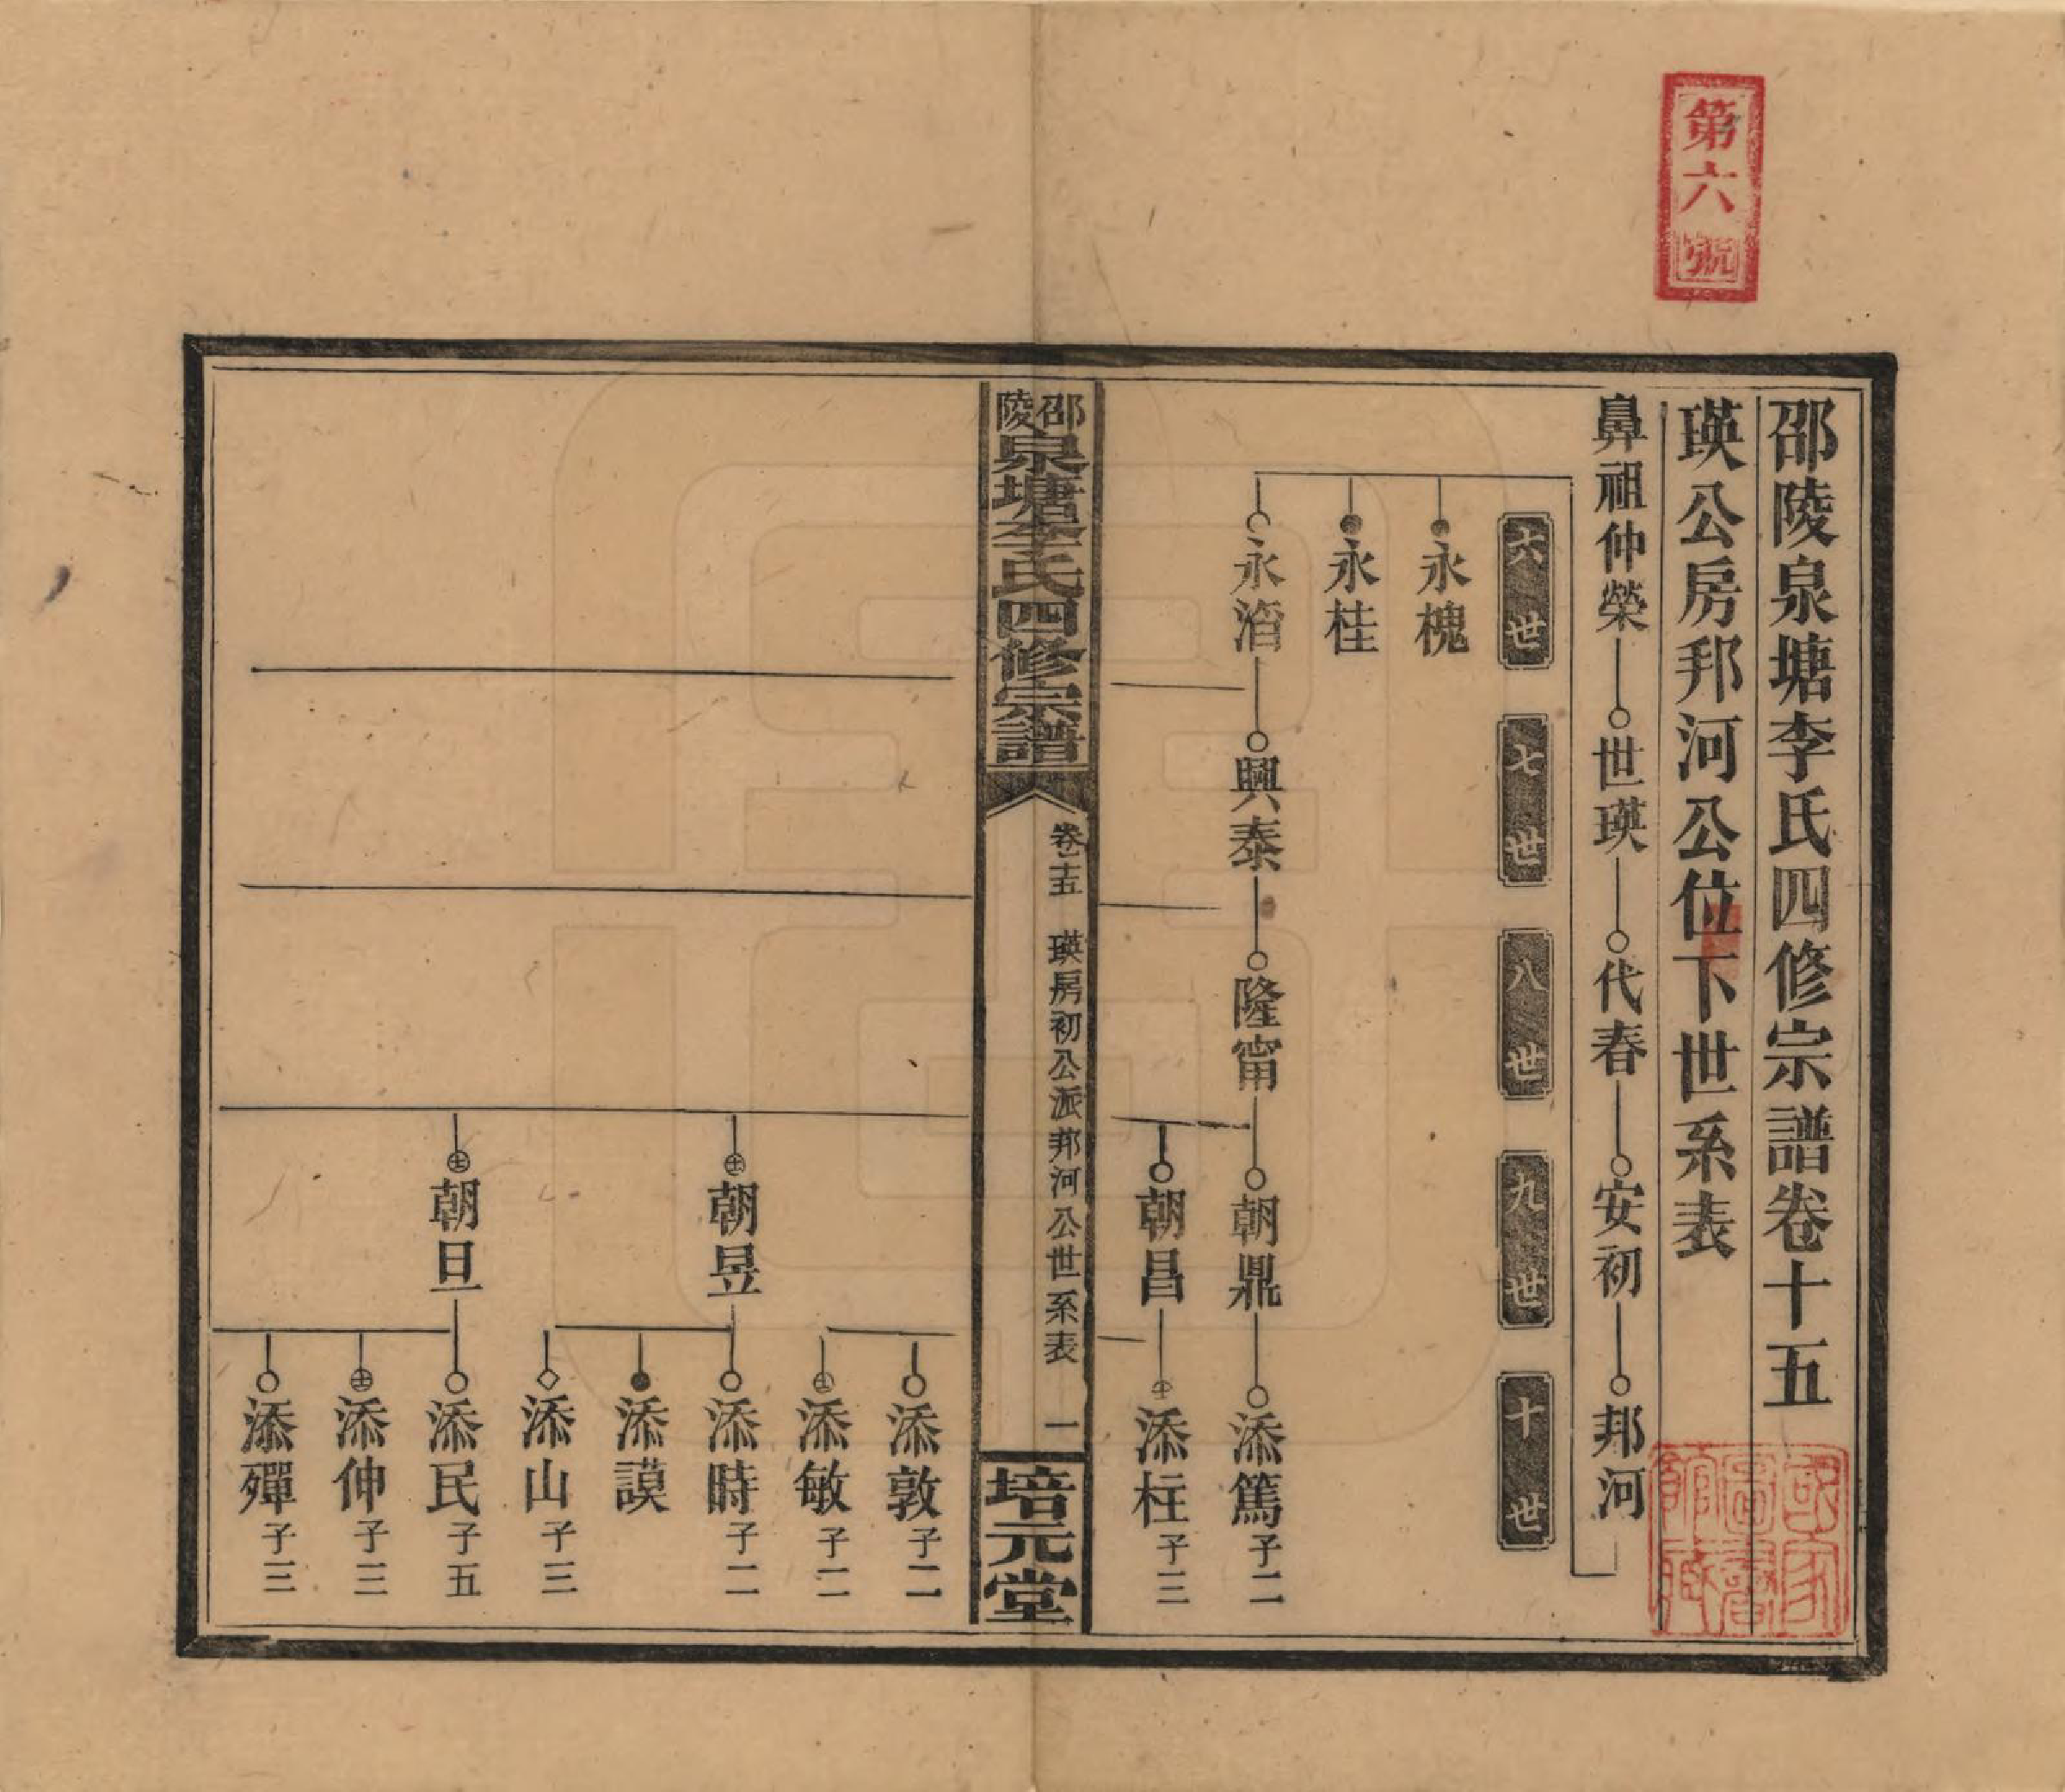 第六號
邵陵泉塘李氏四修宗譜卷十五
瑛公房邦河公位下世系表
鼻祖仲榮 世瑛 代春 安初 邦河
六世 七世 八世 九世 十世
永槐
永桂
永湝 興泰 隆甯 朝鼎 添篤 子二
朝昌 添柱 子三
邵陵泉塘李氏四修宗譜 卷十五 瑛房初公派邦河公世系表 一 培元堂
添敦 子二
添敏 子二
朝昱 添時 子二
添謨
添山 子三
朝旦 添民 子五
添伸 子三
添殫 子三
國家圖書館藏